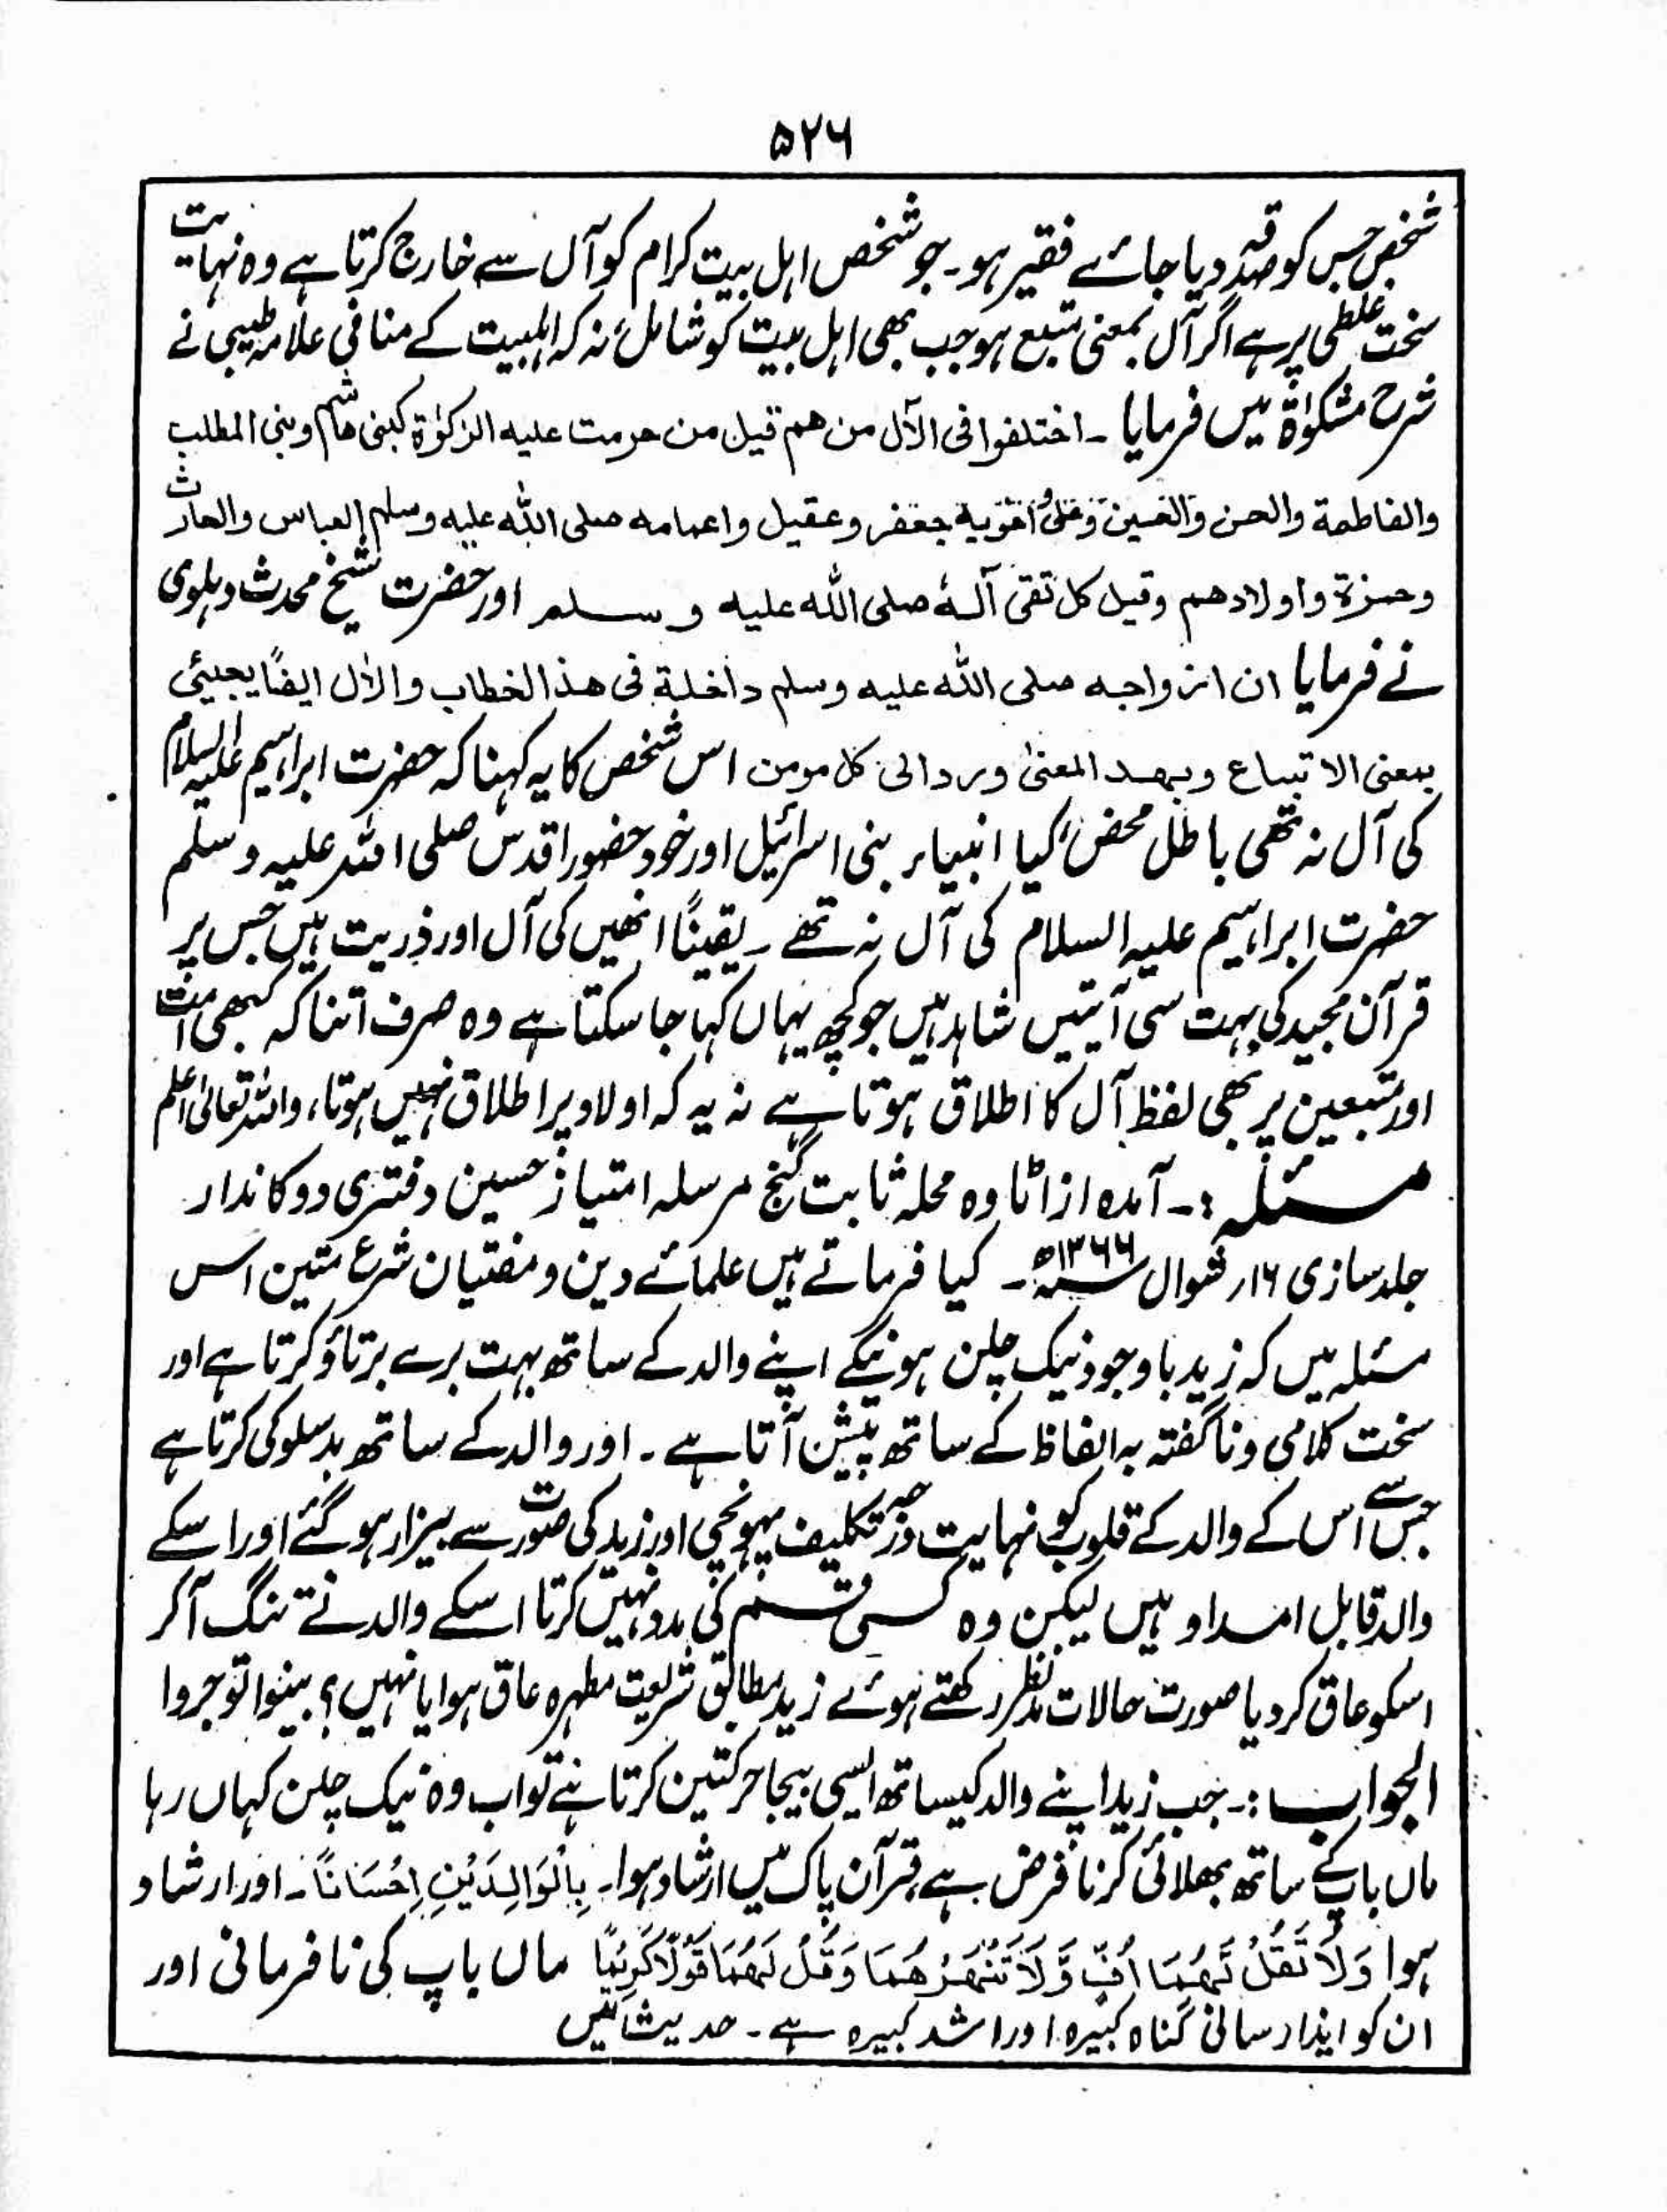 ۵۲۶
شخص جس کو صدقہ دیا جائے فقیر ہو۔ جو شخص اہل بیت کرام کو آل سے خارج کرتا ہے وہ نہایت
سخت غلطی پر ہے اگر آل بمعنی متبع ہو جب بھی اہل بیت کو شامل، نہ کہ اہلبیت کے منافی علامہ طیبی نے
شرح مشکوٰۃ میں فرمایا۔ اختلفوا فی الآل من هم قیل من حرمت علیه الزکوٰة کبنی هاشم وبنی المطلب
والفاطمة والحسن والحسین وعلی اخویه جعفر وعقیل واعمامه صلی الله علیه وسلم العباس والحارث
وحمزة واولادهم وقیل کل تقی آله صلی الله علیه وسلم اور حضرت شیخ محدث دہلوی
نے فرمایا ان ازواجه صلی الله علیه وسلم داخلة فی هذا الخطاب والاٰل ایضًا یجیئی
بمعنی الاتباع وبهذ المعنیٰ ورد الی کل مومن اس شخص کا یہ کہنا کہ حضرت ابراہیم علیہ السلام
کی آل نہ تھی باطل محض، کیا انبیاء بنی اسرائیل اور خود حضور اقدس صلی اللہ علیہ وسلم
حضرت ابراہیم علیہ السلام کی آل نہ تھے۔ یقینًا انھیں کی آل اور ذریت ہیں جس پر
قرآن مجید کی بہت سی آیتیں شاہد ہیں جو کچھ یہاں کہا جا سکتا ہے وہ صرف اتنا کہ کبھی امت
اور متبعین پر بھی لفظ آل کا اطلاق ہوتا ہے نہ یہ کہ اولاد پر اطلاق نہیں ہوتا، واللہ تعالیٰ اعلم
مسئلہ :۔ آمدہ از اٹاوہ محلہ ثابت گنج مرسلہ امتیاز حسین دفتری دوکاندار
جلد سازی ۱۶ر شوال ۱۳۶۶ھ۔ کیا فرماتے ہیں علمائے دین و مفتیان شرع متین اس
مسئلہ میں کہ زید باوجود نیک چلن ہونیکے اپنے والد کے ساتھ بہت برے برتاؤ کرتا ہے اور
سخت کلامی و ناگفتہ بہ الفاظ کے ساتھ پیش آتا ہے۔ اور والد کے ساتھ بدسلوکی کرتا ہے
جس سے اس کے والد کے قلوب کو نہایت درجہ تکلیف پہونچی اور زید کی صورت سے بیزار ہوگئے اور اسکے
والد قابل امداد ہیں لیکن وہ کسی قسم کی مدد نہیں کرتا اسکے والد نے تنگ آکر
اسکو عاق کر دیا صورت حالات مدنظر رکھتے ہوئے زید مطابق شریعت مطہرہ عاق ہوا یا نہیں؟ بینوا توجروا
الجواب :۔ جب زید اپنے والد کیساتھ ایسی بیجا حرکتیں کرتا ہے تو اب وہ نیک چلن کہاں رہا
ماں باپ کے ساتھ بھلائی کرنا فرض ہے قرآن پاک میں ارشاد ہوا۔ بِالْوَالِدَیْنِ اِحْسَانًا۔ اور ارشاد
ہوا وَلَا تَقُلْ لَّهُمَا اُفٍّ وَّلَا تَنْهَرْهُمَا وَقُلْ لَهُمَا قَوْلًا کَرِیْمًا ماں باپ کی نافرمانی اور
ان کو ایذا رسانی گناہ کبیرہ اور اشد کبیرہ ہے۔ حدیث میں